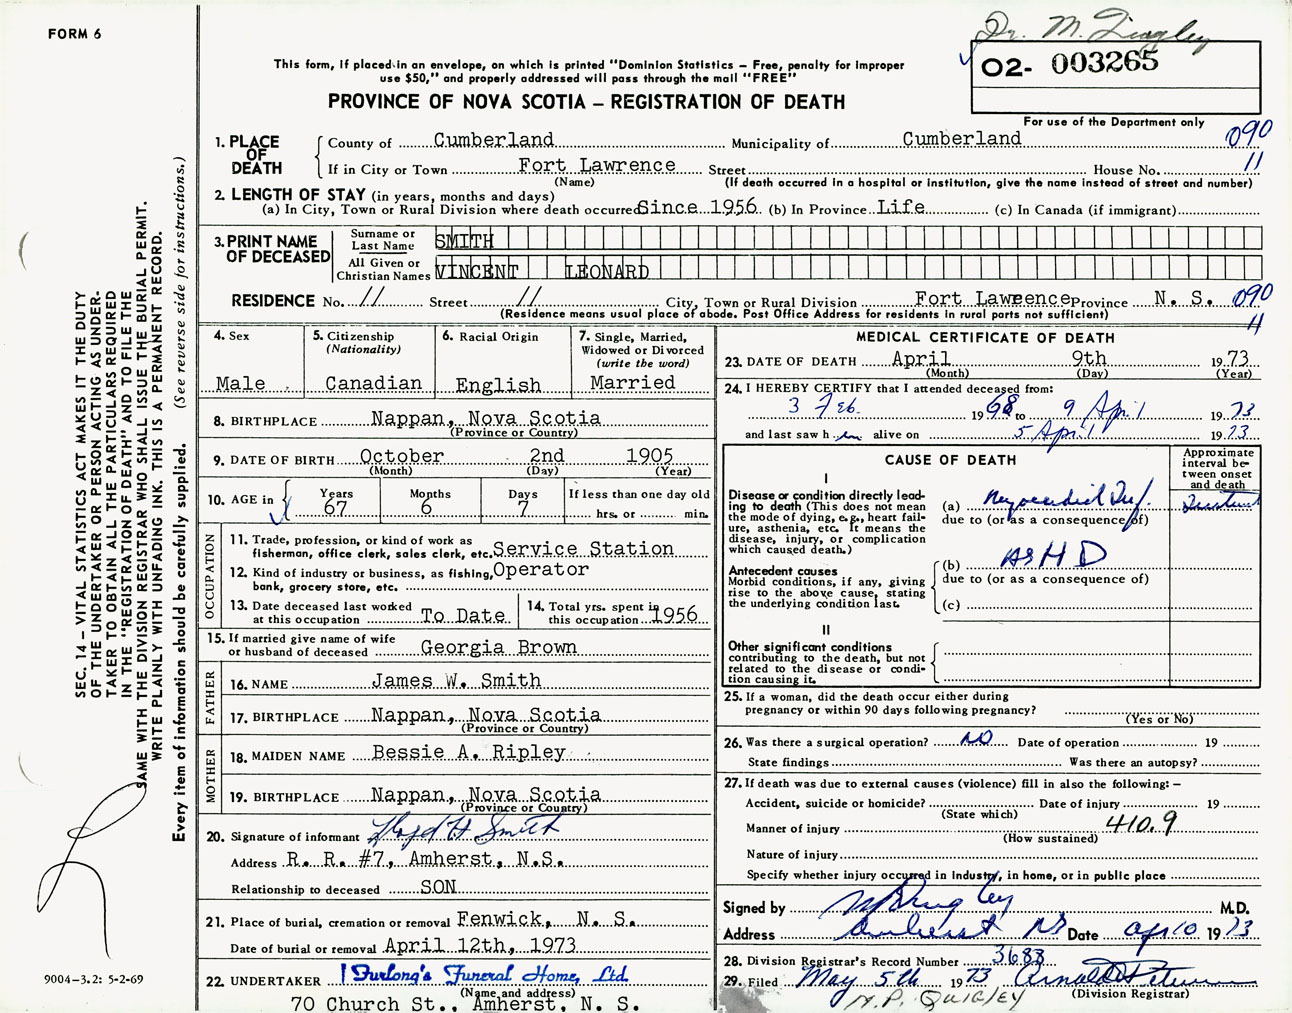 FORM 6
Dr. M.
This form, if placed in an envelope, on which is printed "Dominion Statistics – Free, penalty for improper
use $50," and properly addressed will pass through the mail "FREE"
02- 003265
PROVINCE OF NOVA SCOTIA – REGISTRATION OF DEATH
For use of the Department only
1. PLACE OF DEATH
County of Cumberland Municipality of Cumberland 090
If in City or Town Fort Lawrence Street House No. 11
(Name) (If death occurred in a hospital or institution, give the name instead of street and number)
2. LENGTH OF STAY (in years, months and days)
(a) In City, Town or Rural Division where death occurred Since 1956 (b) In Province Life (c) In Canada (if immigrant)
3. PRINT NAME OF DECEASED
Surname or Last Name SMITH
All Given or Christian Names VINCENT LEONARD
RESIDENCE No. // Street // City, Town or Rural Division Fort Lawrence Province N. S. 090
(Residence means usual place of abode. Post Office Address for residents in rural parts not sufficient) 11
4. Sex
Male
5. Citizenship
(Nationality)
Canadian
6. Racial Origin
English
7. Single, Married,
Widowed or Divorced
(write the word)
Married
8. BIRTHPLACE Nappan, Nova Scotia
(Province or Country)
9. DATE OF BIRTH October 2nd 1905
(Month) (Day) (Year)
10. AGE in
Years Months Days If less than one day old
67 6 7 hrs. or min.
OCCUPATION
11. Trade, profession, or kind of work as
fisherman, office clerk, sales clerk, etc. Service Station
12. Kind of industry or business, as fishing, Operator
bank, grocery store, etc.
13. Date deceased last worked
at this occupation To Date
14. Total yrs. spent in
this occupation 1956
15. If married give name of wife
or husband of deceased Georgia Brown
FATHER
16. NAME James W. Smith
17. BIRTHPLACE Nappan, Nova Scotia
(Province or Country)
MOTHER
18. MAIDEN NAME Bessie A. Ripley
19. BIRTHPLACE Nappan, Nova Scotia
(Province or Country)
20. Signature of informant Lloyd H Smith
Address R. R. #7, Amherst, N.S.
Relationship to deceased SON
21. Place of burial, cremation or removal Fenwick, N. S.
Date of burial or removal April 12th, 1973
22. UNDERTAKER Furlong's Funeral Home, Ltd.
(Name and address)
70 Church St., Amherst, N. S.
MEDICAL CERTIFICATE OF DEATH
23. DATE OF DEATH April 9th 1973
(Month) (Day) (Year)
24. I HEREBY CERTIFY that I attended deceased from:
3 Feb. 1968 to 9 April 1973
and last saw him alive on 5 April 1973
CAUSE OF DEATH
Approximate
interval be-
tween onset
and death
I
Disease or condition directly lead-
ing to death (This does not mean
the mode of dying, e.g., heart fail-
ure, asthenia, etc. It means the
disease, injury, or complication
which caused death.)
(a) Myocardial Inf. Instant
due to (or as a consequence of)
Antecedent causes
Morbid conditions, if any, giving
rise to the above cause, stating
the underlying condition last.
(b) ASHD
due to (or as a consequence of)
(c)
II
Other significant conditions
contributing to the death, but not
related to the disease or condi-
tion causing it.
25. If a woman, did the death occur either during
pregnancy or within 90 days following pregnancy?
(Yes or No)
26. Was there a surgical operation? NO Date of operation 19
State findings Was there an autopsy?
27. If death was due to external causes (violence) fill in also the following: –
Accident, suicide or homicide? Date of injury 19
(State which)
Manner of injury 410.9
(How sustained)
Nature of injury
Specify whether injury occurred in Industry, in home, or in public place
Signed by M.D.
Address Amherst NS Date Ap 10 1973
28. Division Registrar's Record Number 3683
29. Filed May 5th 1973 Arnold
(Division Registrar)
M.P. QUIGLEY
SEC. 14 – VITAL STATISTICS ACT MAKES IT THE DUTY
OF THE UNDERTAKER OR PERSON ACTING AS UNDER-
TAKER TO OBTAIN ALL THE PARTICULARS REQUIRED
IN THE "REGISTRATION OF DEATH" AND TO FILE THE
SAME WITH THE DIVISION REGISTRAR WHO SHALL ISSUE THE BURIAL PERMIT.
WRITE PLAINLY WITH UNFADING INK. THIS IS A PERMANENT RECORD.
Every item of information should be carefully supplied. (See reverse side for instructions.)
9004–3.2: 5-2-69